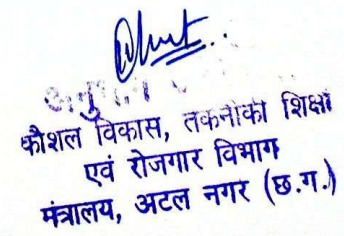 कौशल विकास, तकनीकी शिक्षा
एवं रोजगार विभाग
मंत्रालय, अटल नगर (छ.ग.)